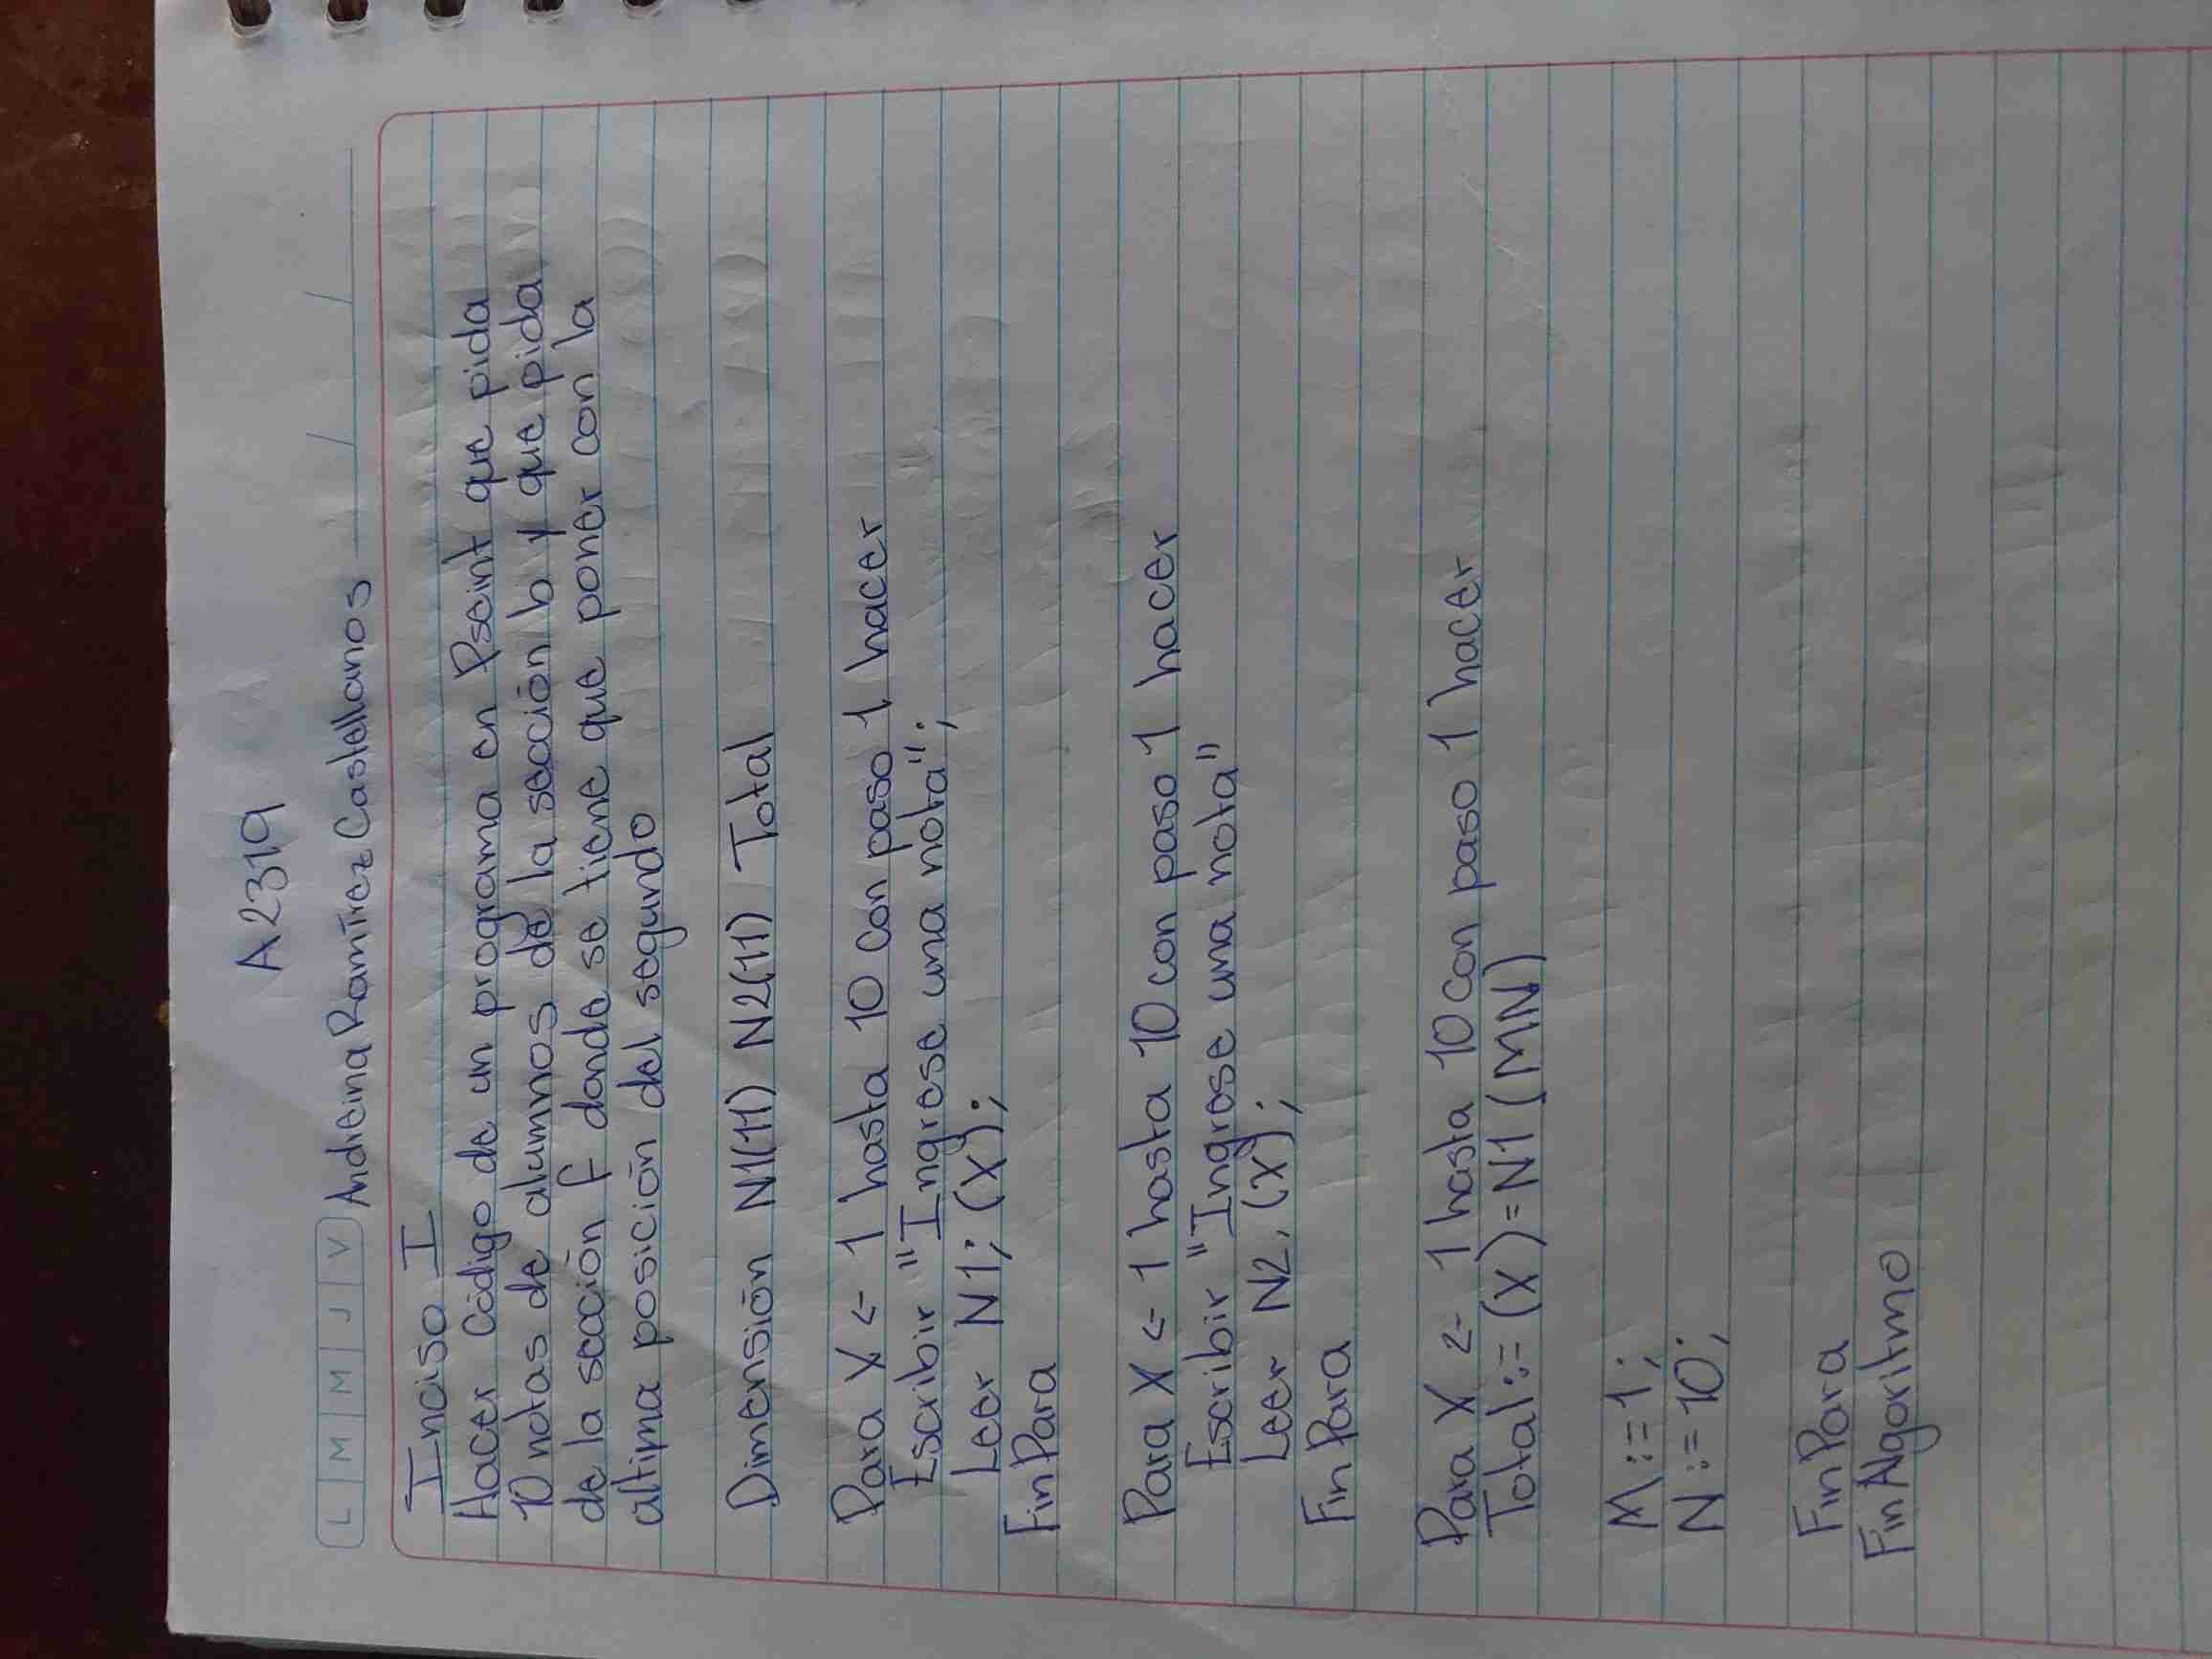 A2319
L M M J V Andreina Ramírez Castellanos
Inciso I
Hacer Código de un programa en Pseint que pida
10 notas de alumnos de la sección b y que pida
de la sección f donde se tiene que poner con la
última posición del segundo
Dimensión N1(11) N2(11) Total
Para X <- 1 hasta 10 con paso 1 hacer
Escribir "Ingrese una nota";
Leer N1; (x);
FinPara
Para X <- 1 hasta 10 con paso 1 hacer
Escribir "Ingrese una nota"
Leer N2, (x);
FinPara
Para X <- 1 hasta 10 con paso 1 hacer
Total:=(x)=N1(MN)
M:=1;
N:=10;
FinPara
FinAlgoritmo